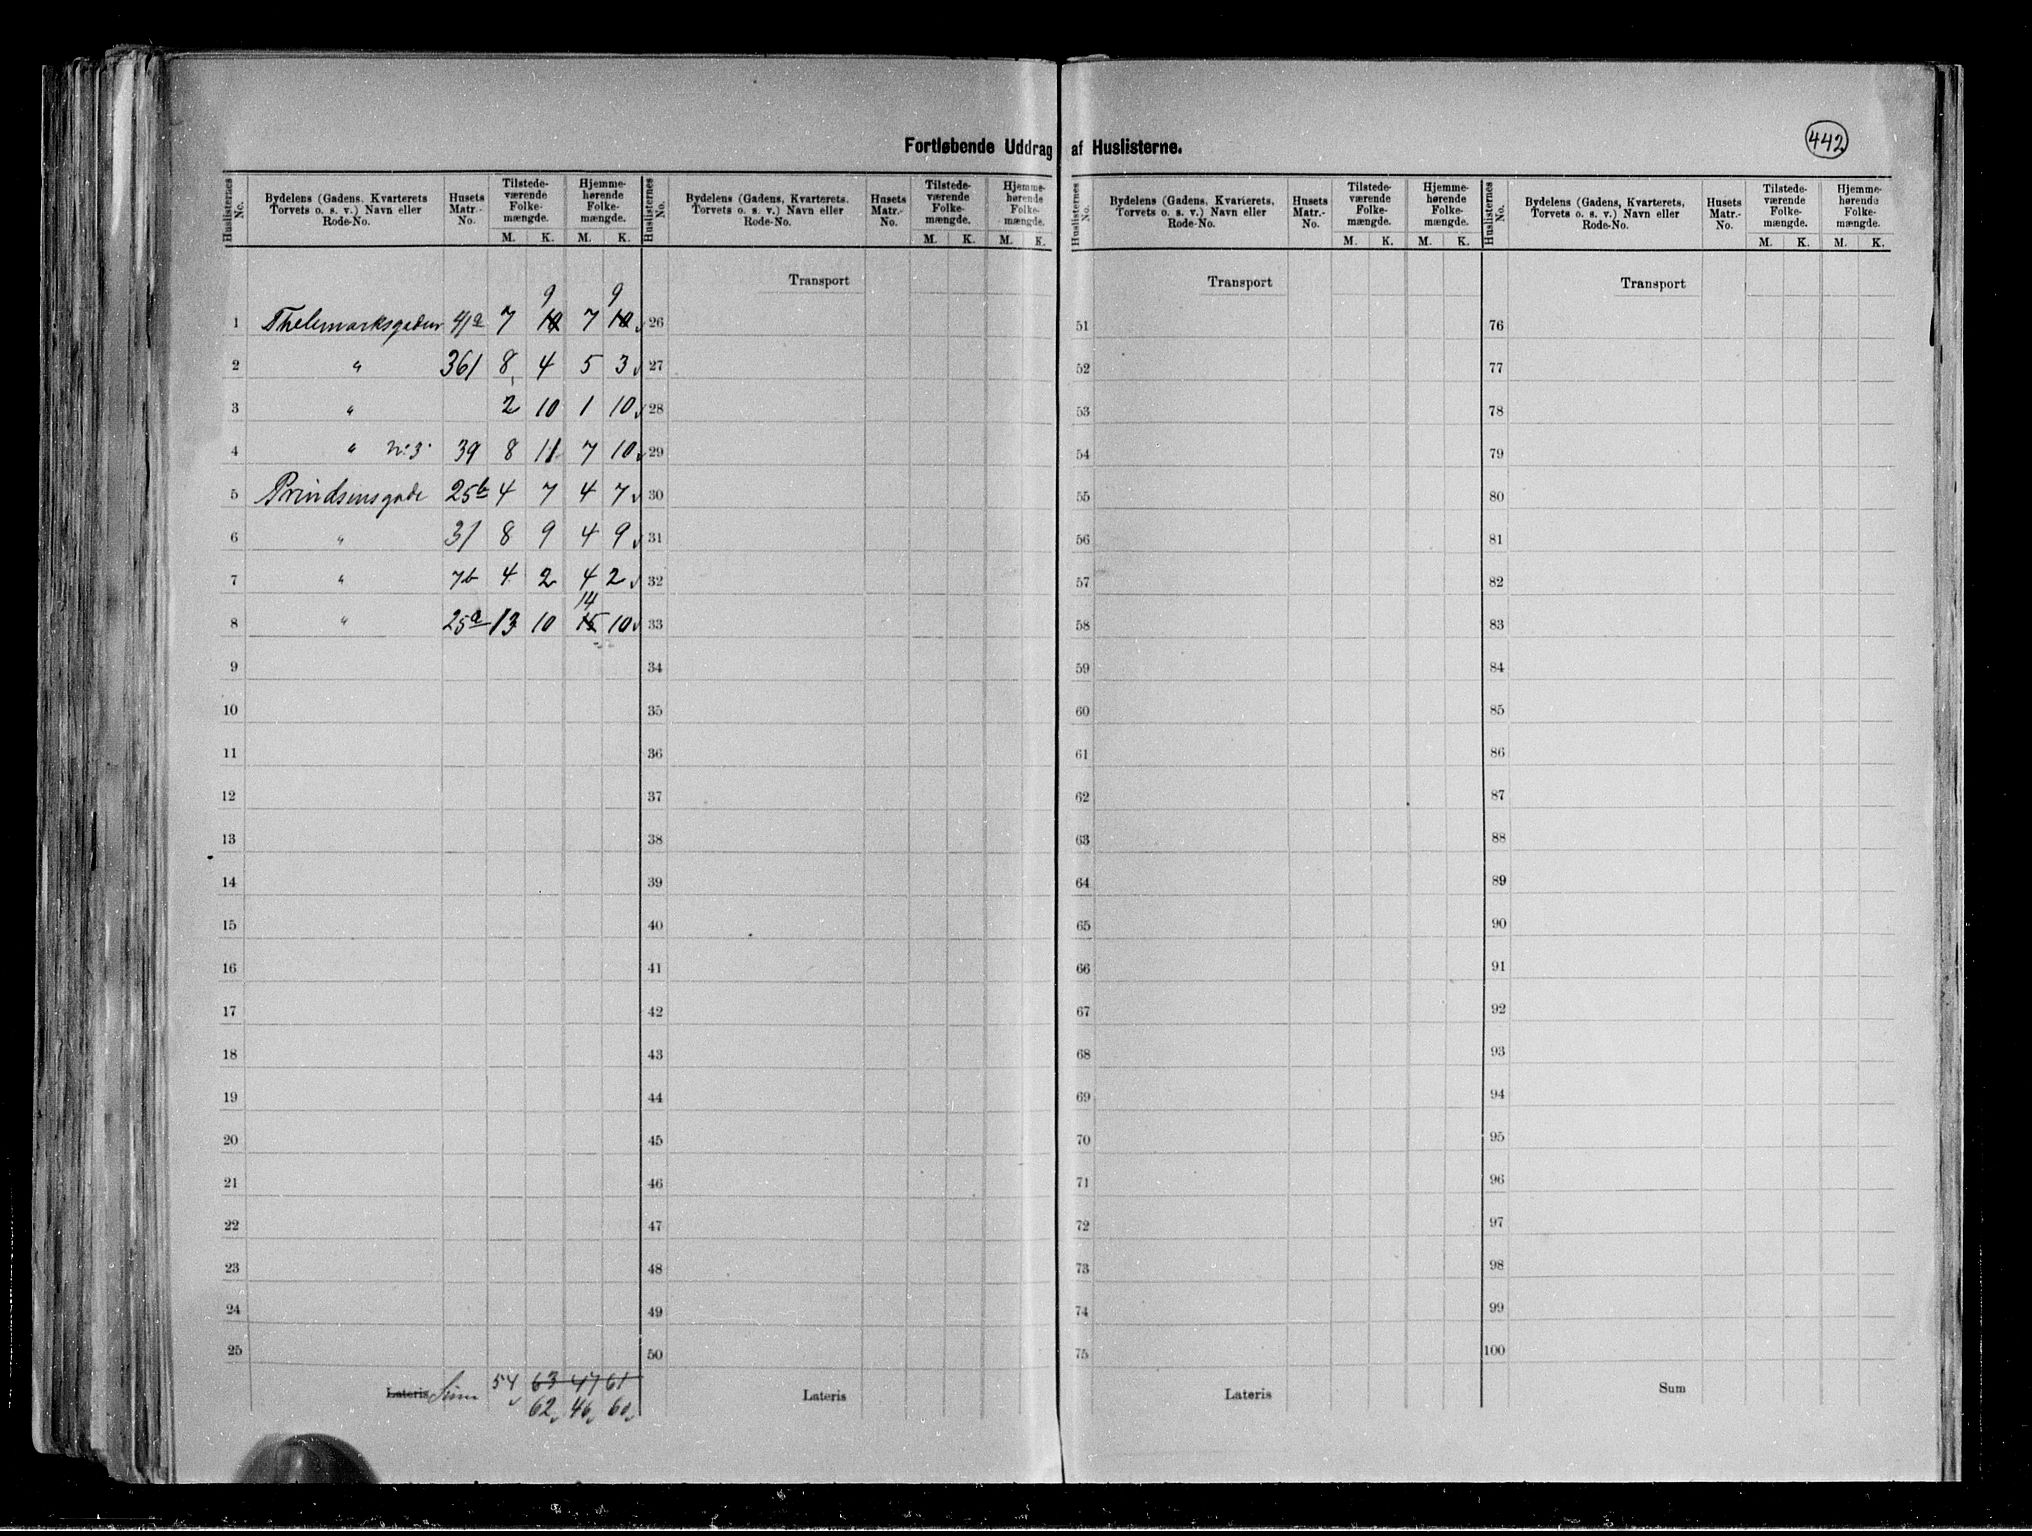 442
Fortløbende Uddrag af Huslisterne.
Huslisternes No. Bydelens (Gadens, Kvarterets Torvets o. s. v.) Navn eller Rode-No. Husets Matr.-No. Tilstedeværende Folkemængde. M. K. Hjemmehørende Folkemængde. M. K.
Huslisternes No. Bydelens (Gadens, Kvarterets, Torvets o. s. v.) Navn eller Rode-No. Husets Matr.-No. Tilstedeværende Folkemængde. M. K. Hjemmehørende Folkemængde. M. K.
Huslisternes No. Bydelens (Gadens, Kvarterets, Torvets o. s. v.) Navn eller Rode-No. Husets Matr.-No. Tilstedeværende Folkemængde. M. K. Hjemmehørende Folkemængde. M. K.
Huslisternes No. Bydelens (Gadens, Kvarterets, Torvets o. s. v.) Navn eller Rode-No. Husets Matr.-No. Tilstedeværende Folkemængde. M. K. Hjemmehørende Folkemængde. M. K.
Transport Transport Transport
9 9
1 Thelemarksgaden 41a 7 10 7 10 26 51 76
2 " 361 8 4 5 3 27 52 77
3 " 2 10 1 10 28 53 78
4 " No 3 39 8 11 7 10 29 54 79
5 Prindsensgade 25b 4 7 4 7 30 55 80
6 " 31 8 9 4 9 31 56 81
7 " 7b 4 2 4 2 32 57 82
14
8 " 25a 13 10 15 10 33 58 83
9 34 59 84
10 35 60 85
11 36 61 86
12 37 62 87
13 38 63 88
14 39 64 89
15 40 65 90
16 41 66 91
17 42 67 92
18 43 68 93
19 44 69 94
20 45 70 95
21 46 71 96
22 47 72 97
23 48 73 98
24 49 74 99
25 50 75 100
Lateris Sum 54 63 47 61 Lateris Lateris Sum
62 46 60